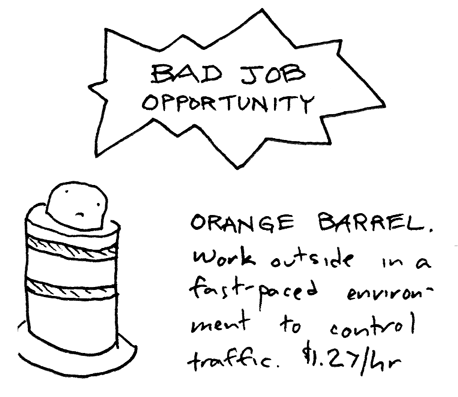 BAD JOB
OPPORTUNITY
ORANGE BARREL.
Work outside in a
fast-paced environ-
ment to control
traffic. $1.27/hr